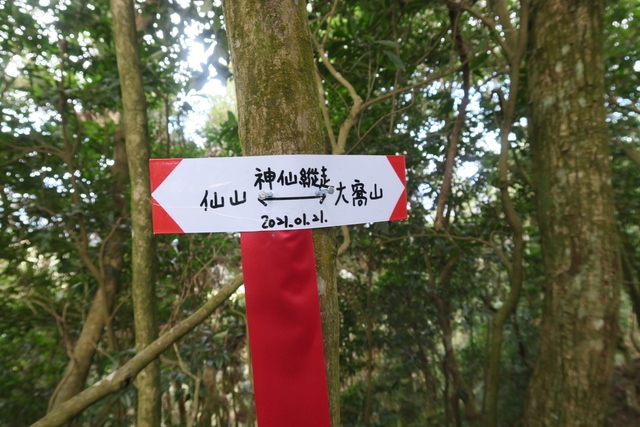 神仙縱走
仙山 ⟷ 大窩山
2021.01.21.